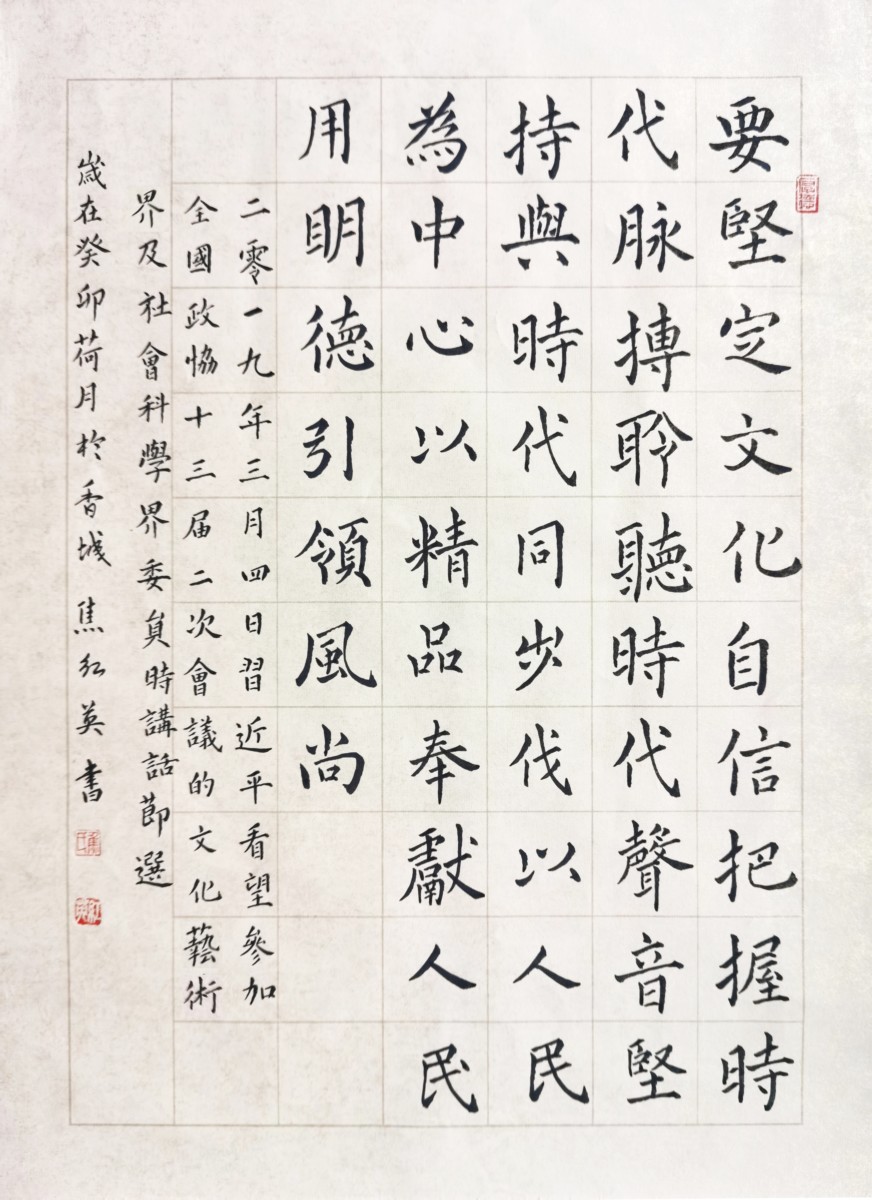 要堅定文化自信把握時
代脉搏聆聽時代聲音堅
持與時代同步伐以人民
為中心以精品奉獻人民
用明德引領風尚
二零一九年三月四日習近平看望參加
全國政協十三届二次會議的文化藝術
界及社會科學界委員時講話節選
歲在癸卯荷月於香城焦紅英書